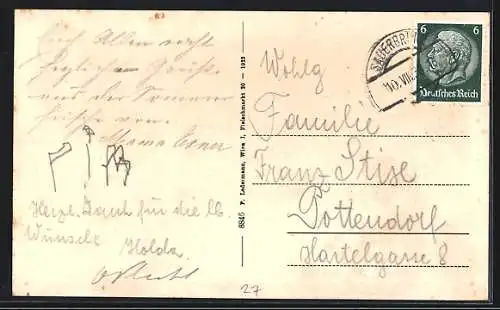 Euch Allen recht
herzliche Grüße
aus der Sommer
frische von
Mama Exner
Herzl. Dank für die lb.
Wünsche Holda
8846 F. Ledermann, Wien I, Fleischmarkt 20 — 1935
SAUERBR
10. VIII.
6 6
Deutsches Reich
Wohlg
Familie
Franz Stise
Pottendorf
Hartelgasse 8
27